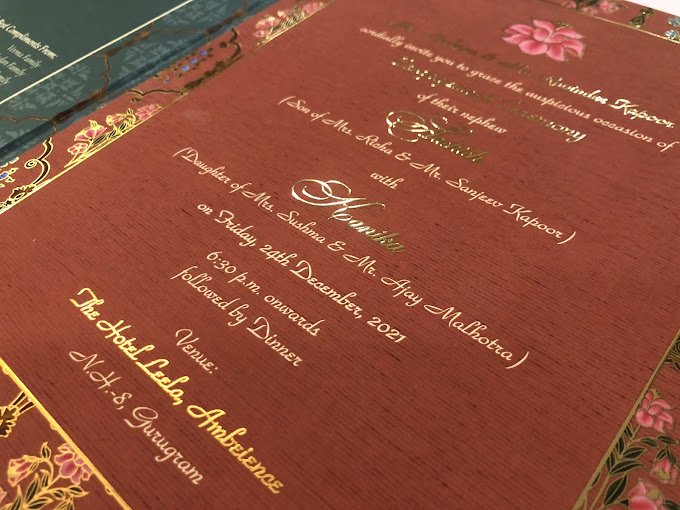 Best Compliments From:
Verma Family
Family
Family
& Mr. Ravinder Kapoor
cordially invite you to grace the auspicious occasion of
Ceremony
of their nephew
(Son of Mrs. Rekha & Mr. Sanjeev Kapoor)
with
Kanika
(Daughter of Mrs. Sushma & Mr. Ajay Malhotra)
on Friday, 24th December, 2021
6:30 p.m. onwards
followed by Dinner
Venue:
The Hotel Leela, Ambeience
N.H.-8, Gurugram